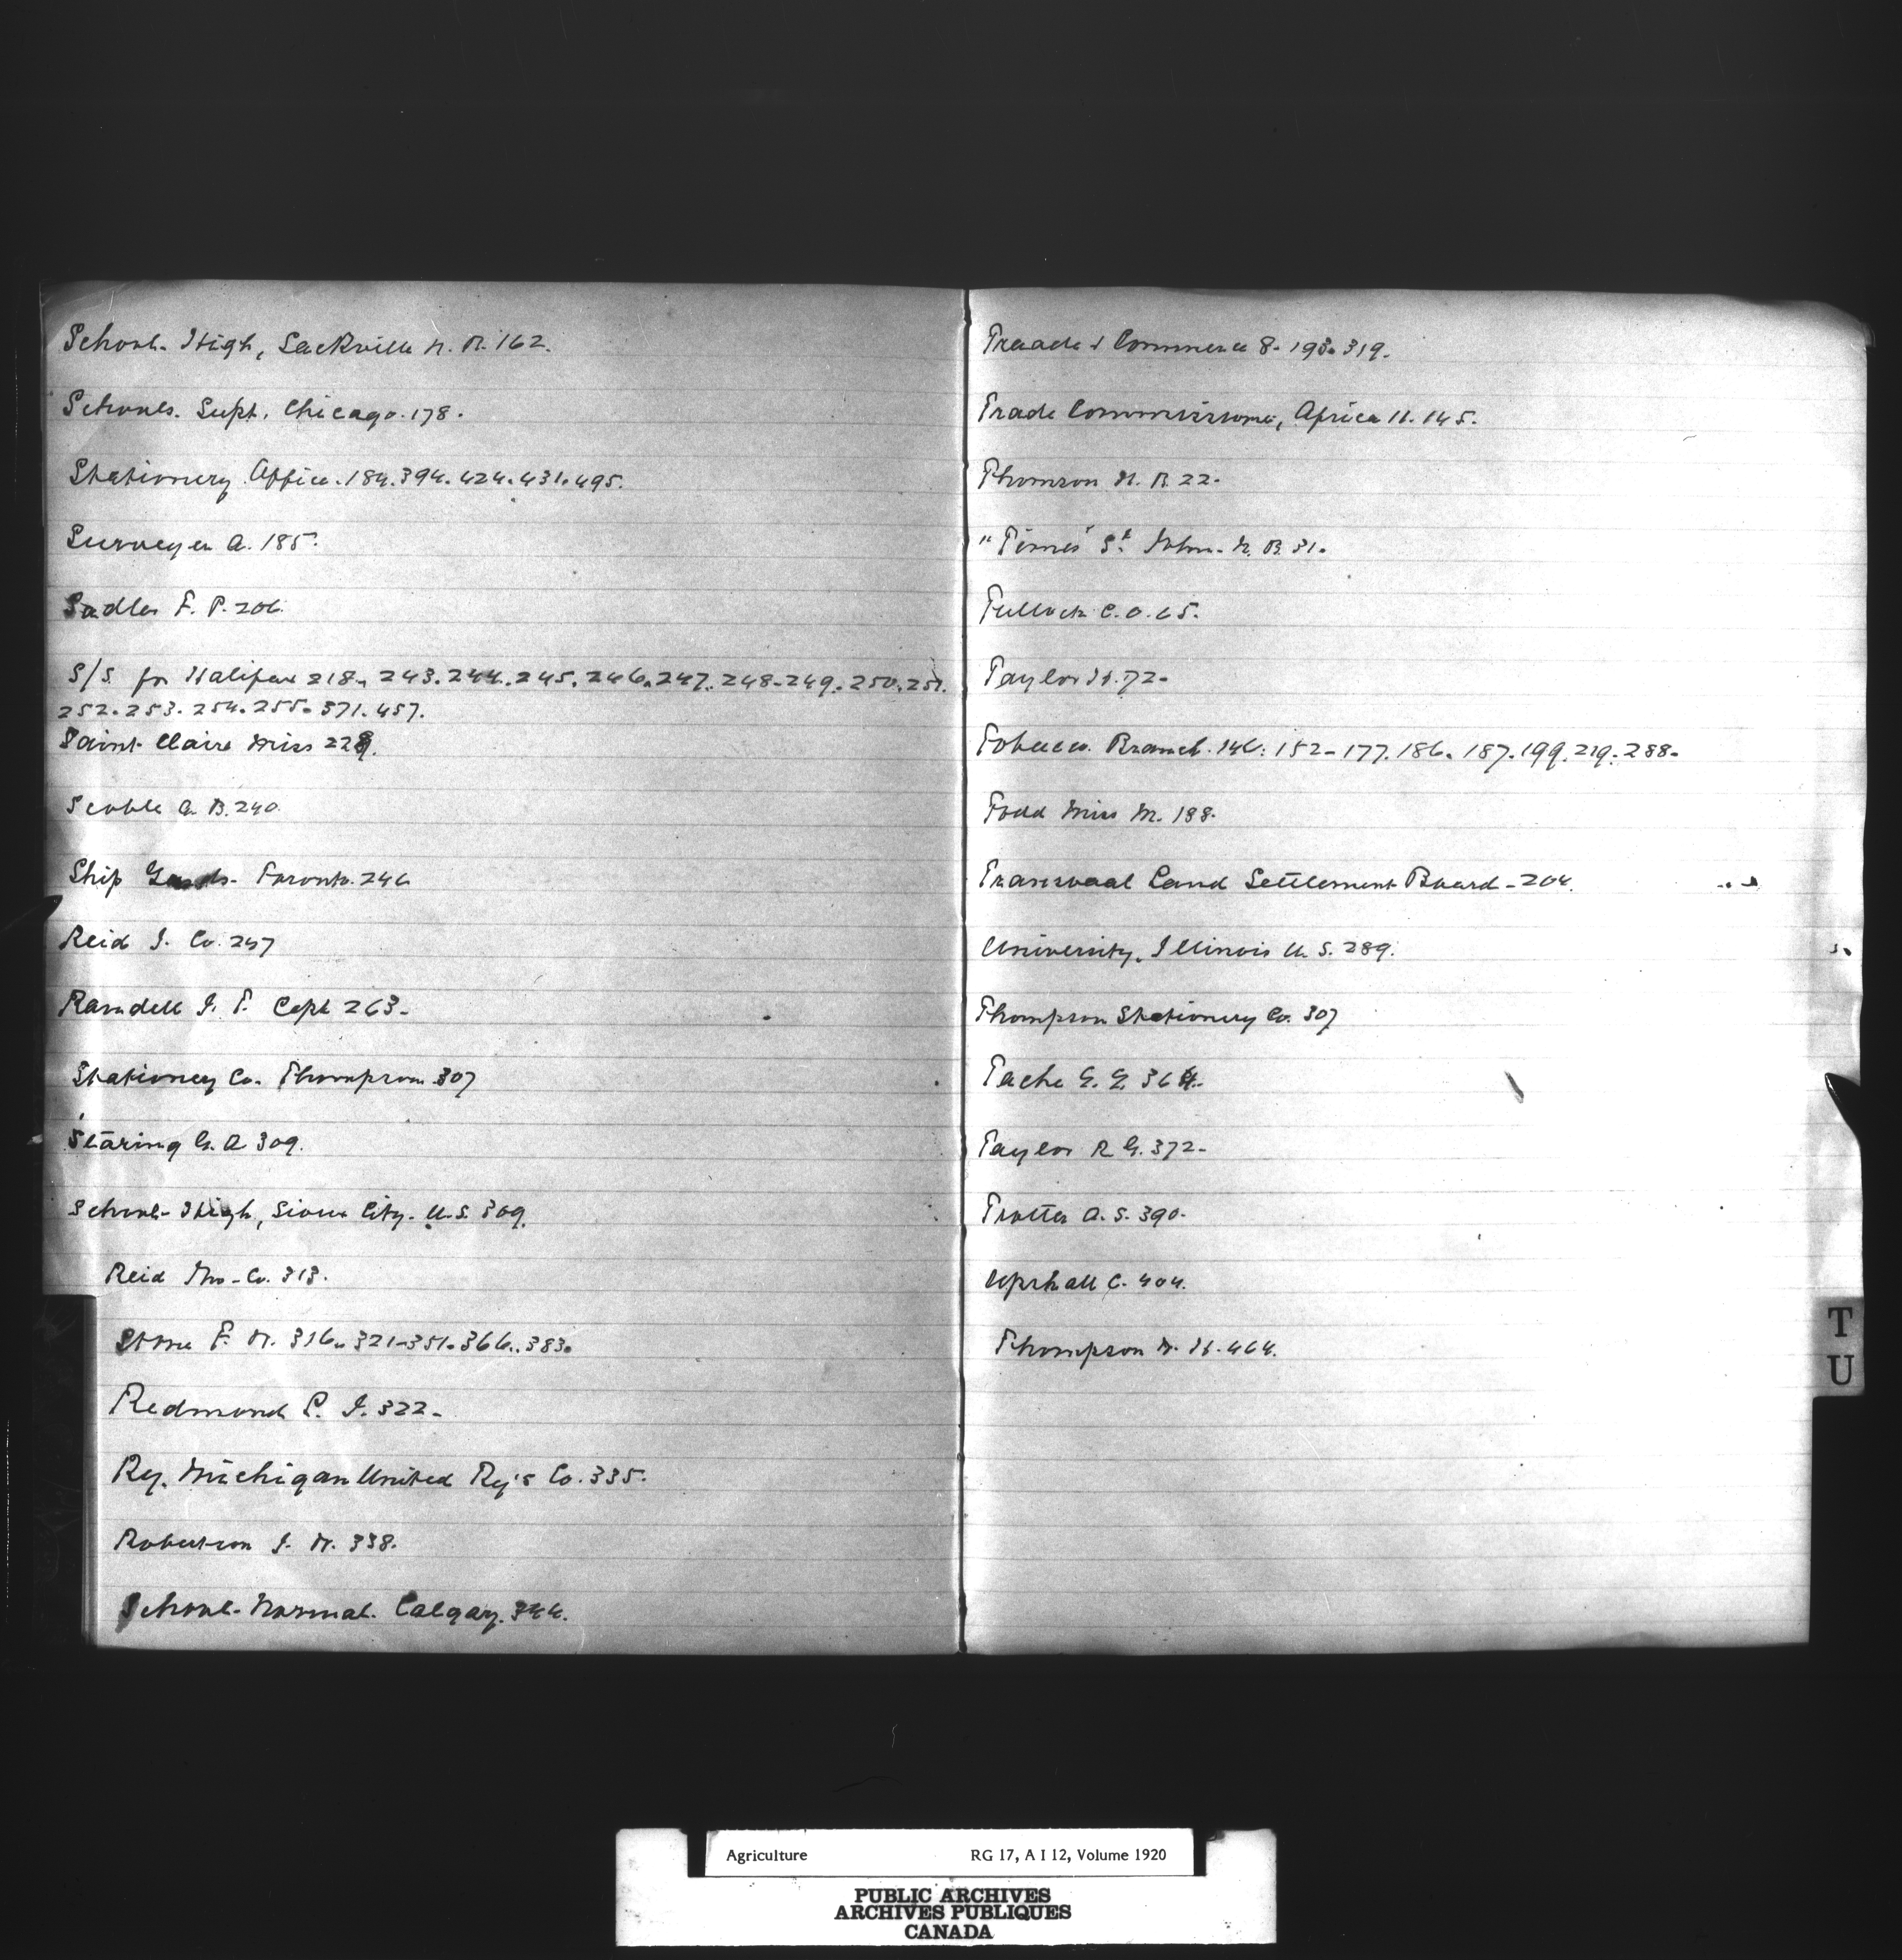 School- High, Sackville N. B. 162.
Schools. Supt. Chicago. 178.
Stationery Office. 184. 394. 424. 431. 495.
Surveyer A. 185.
Sadler F. P. 206.
S/S. for Halifax 218. 243. 244. 245. 246. 247. 248. 249. 250. 251.
252. 253. 254. 255. 371. 457.
Saint Claire Miss 229.
Scoble A. B. 240.
Ship Toronto. 246
Reid J. Co. 257
Ramdell J. T. Capt 263.
Stationery Co. Thompson 307
Staring G. A 309.
School- High, Sioux City. U.S. 309.
Reid Co. 313.
Stone F. W. 316. 321. 351. 366. 383.
Redmond P. J. 322.
Ry. Michigan United Ry's Co. 335.
Robertson J. W. 338.
School- Normal. Calgary. 344.
Traade & Commerce 8. 193. 319.
Trade Commissioner, Africa 11. 145.
Thomson H. B. 22.
"Times" St. John. N. B. 31.
Tullock C. O. 65.
Taylor H. 72.
Tobacco. Branch. 146. 152. 177. 186. 187. 199. 219. 288.
Todd Miss M. 188.
Transvaal Land Settlement Board. 204.
University. Illinois U. S. 289.
Thompson Stationery Co. 307
Tache E. E. 364.
Taylor R G. 372.
Trotter A. S. 390.
Upshall C. 404.
Thompson W. H. 464.
T
U
Agriculture RG 17, A I 12, Volume 1920
PUBLIC ARCHIVES
ARCHIVES PUBLIQUES
CANADA